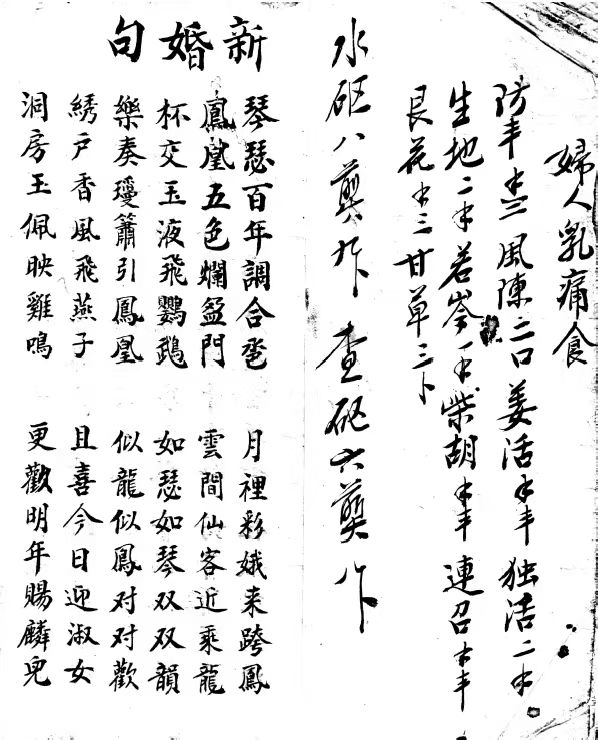 婦人乳痛食
防丰 風陳二 姜活 独活二
生地二 若岑 柴胡 連召
艮花 三甘草三卜
水 八
查 六
新婚句
琴瑟百年調合卺 月裡彩娥来跨鳳
鳳凰五色爛盈門 雲間仙客近乘龍
杯交玉液飛鸚鵡 如瑟如琴双双韻
樂奏瓊簫引鳳凰 似龍似鳳对对歡
綉户香風飛燕子 且喜今日迎淑女
洞房玉佩映雞鳴 更歡明年賜麟兒